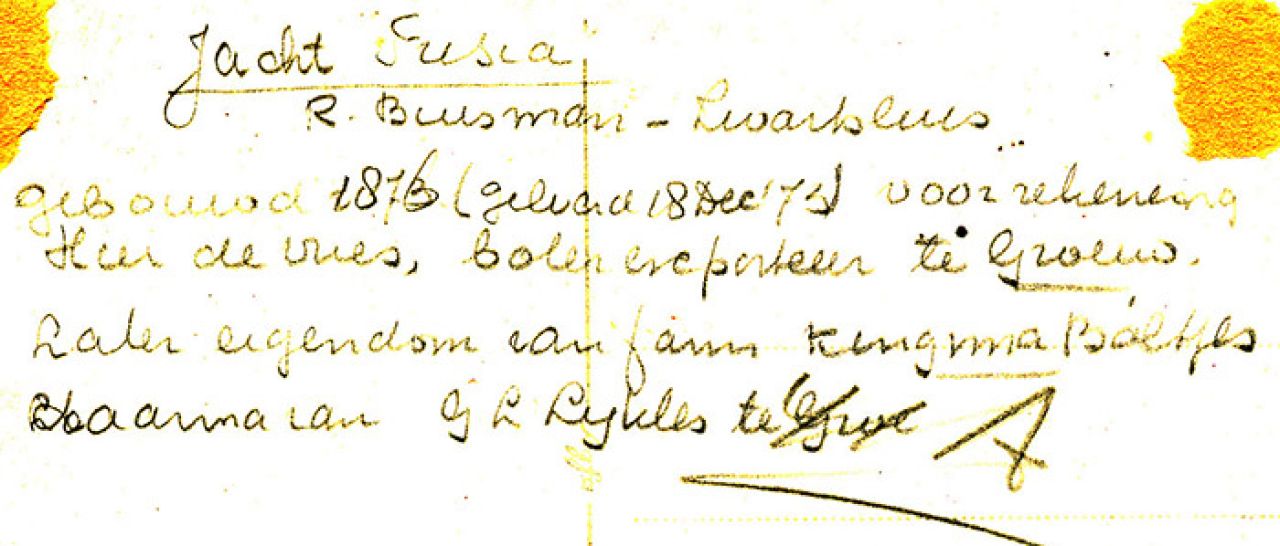 Jacht Frisia
R. Buusman - Zwartsluis
gebouwd 1876 (geleverd 18 Dec '75) voor rekening
Heer de Vries, boterexporteur te Grouw.
Later eigendom van fam Kingma Boltjes
daarna van G L Lijkles te Grouw A